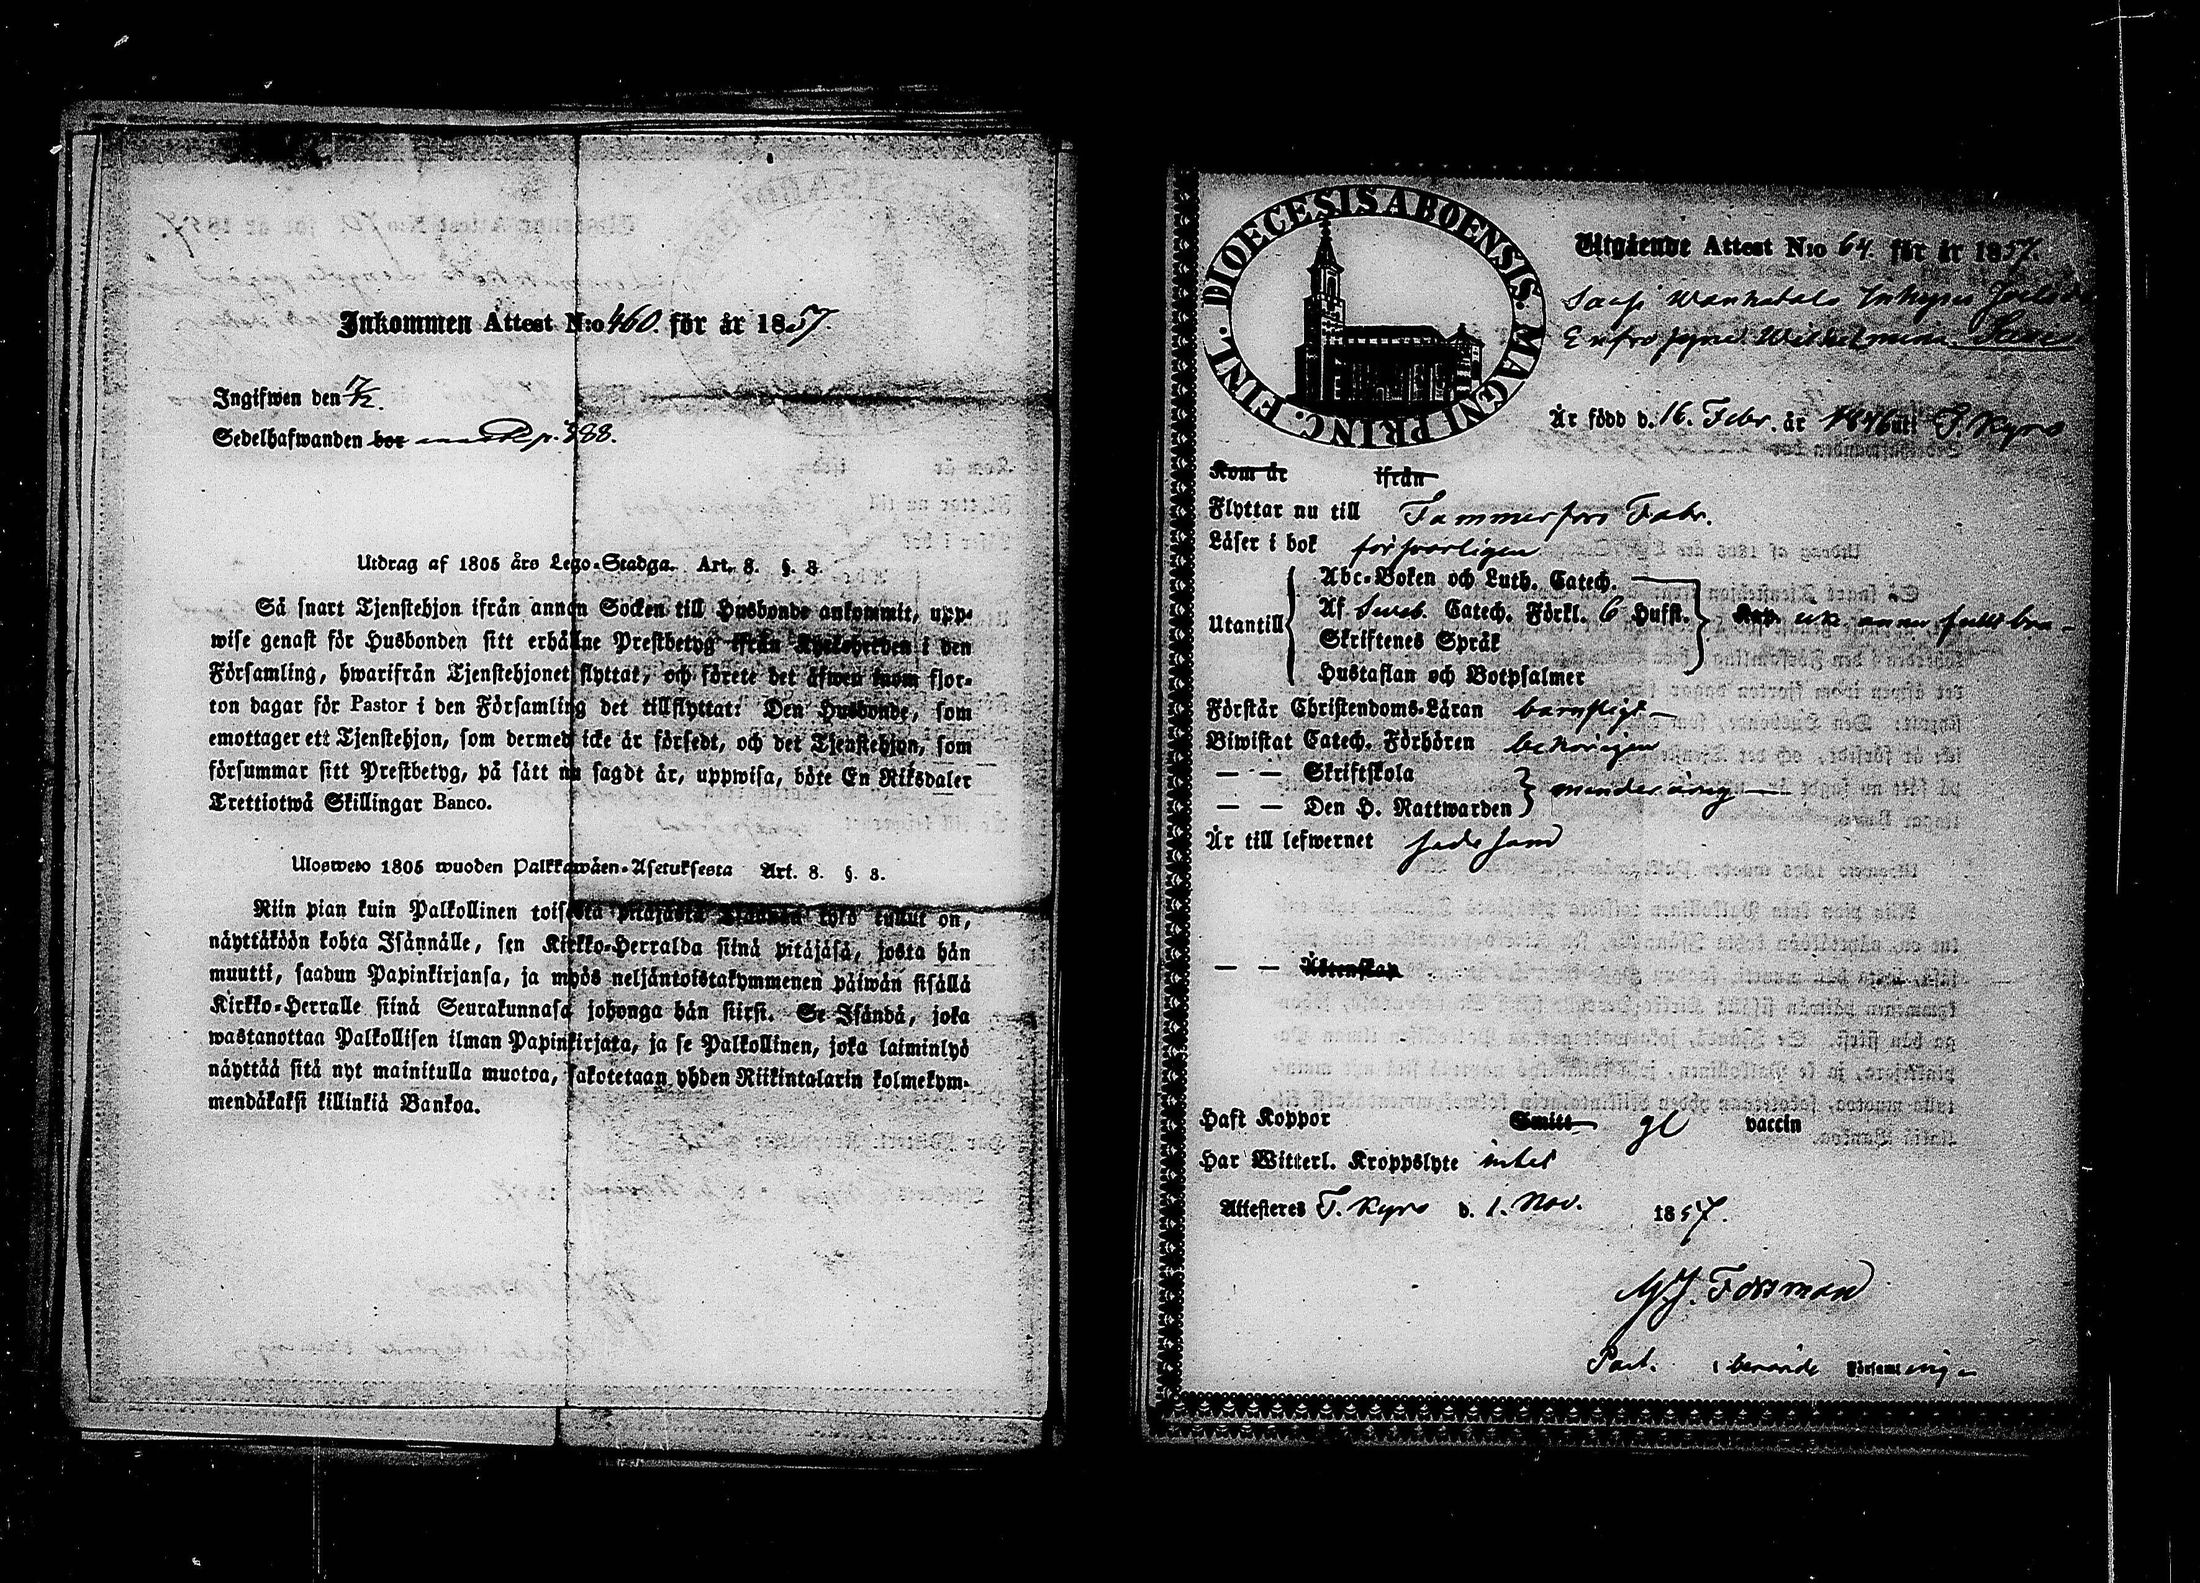 Inkommen Attest N:o 460 för år 1857.
Ingifwen den 7/12.
Sedelhafwanden bor p. 388.
Utdrag af 1805 års Lego-Stadga. Art. 8. §. 8.
Så snart Tjenstehjon ifrån annan Socken till Husbonde ankommit, upp-
wise genast för Husbonden sitt erhållne Prestbetyg ifrån Kyrkoherden i den
Församling, hwarifrån Tjenstehjonet flyttat, och förete det äfwen inom fjor-
ton dagar för Pastor i den Församling det tillflyttat: Den Husbonde, som
emottager ett Tjenstehjon, som dermed icke är försedt, och det Tjenstehjon, som
försummar sitt Prestbetyg, på sätt nu sagdt är, uppwisa, böte En Riksdaler
Trettiotwå Skillingar Banco.
Ulosweto 1805 wuoden Palkkawäen-Asetuksesta Art. 8. §. 8.
Niin pian kuin Palkollinen toisesta pitäjästä Isännän tykö tullut on,
näyttäköön kohta Isännälle, sen Kirkko-Herralda siinä pitäjäsä, josta hän
muutti, saadun Papinkirjansa, ja myös neljäntoistakymmenen päiwän sisällä
Kirkko-Herralle siinä Seurakunnasa johonga hän siirsi. Se Isändä, joka
wastanottaa Palkollisen ilman Papinkirjata, ja se Palkollinen, joka laiminlyö
näyttää sitä nyt mainitulla muotoa, sakotetaan yhden Riikintalarin kolmekym-
mendäkaksi killinkiä Bankoa.
DIOECESIS ABOENSIS. MAGNI PRINC. FINL.
Utgående Attest N:o 64. för år 1857.
Wilhelmina
Är född d. 16. Febr. år 1846 uti T. Kyro
Kom år ifrån
Flyttar nu till Tammerfors Fabr.
Läser i bok försvarligen
Utantill
Abc-Boken och Luth. Catech.
Af Sveb. Catech. Förkl. 6 Hufst.
Skriftenes Språk
Hustaflan och Botpsalmer
Förstår Christendoms-Läran barnsligt
Biwistat Catech. Förhören behörigen
— — Skriftskola
— — Den H. Nattwarden
minderårig
Är till lefwernet sedesam
— — Äktenskap
Haft Koppor Smitt gl vaccin
Har Witterl. Kroppslyte intet
Attesteres T. Kyro d. 1. Nov. 1857.
Forsman
Past. i berörde Församling